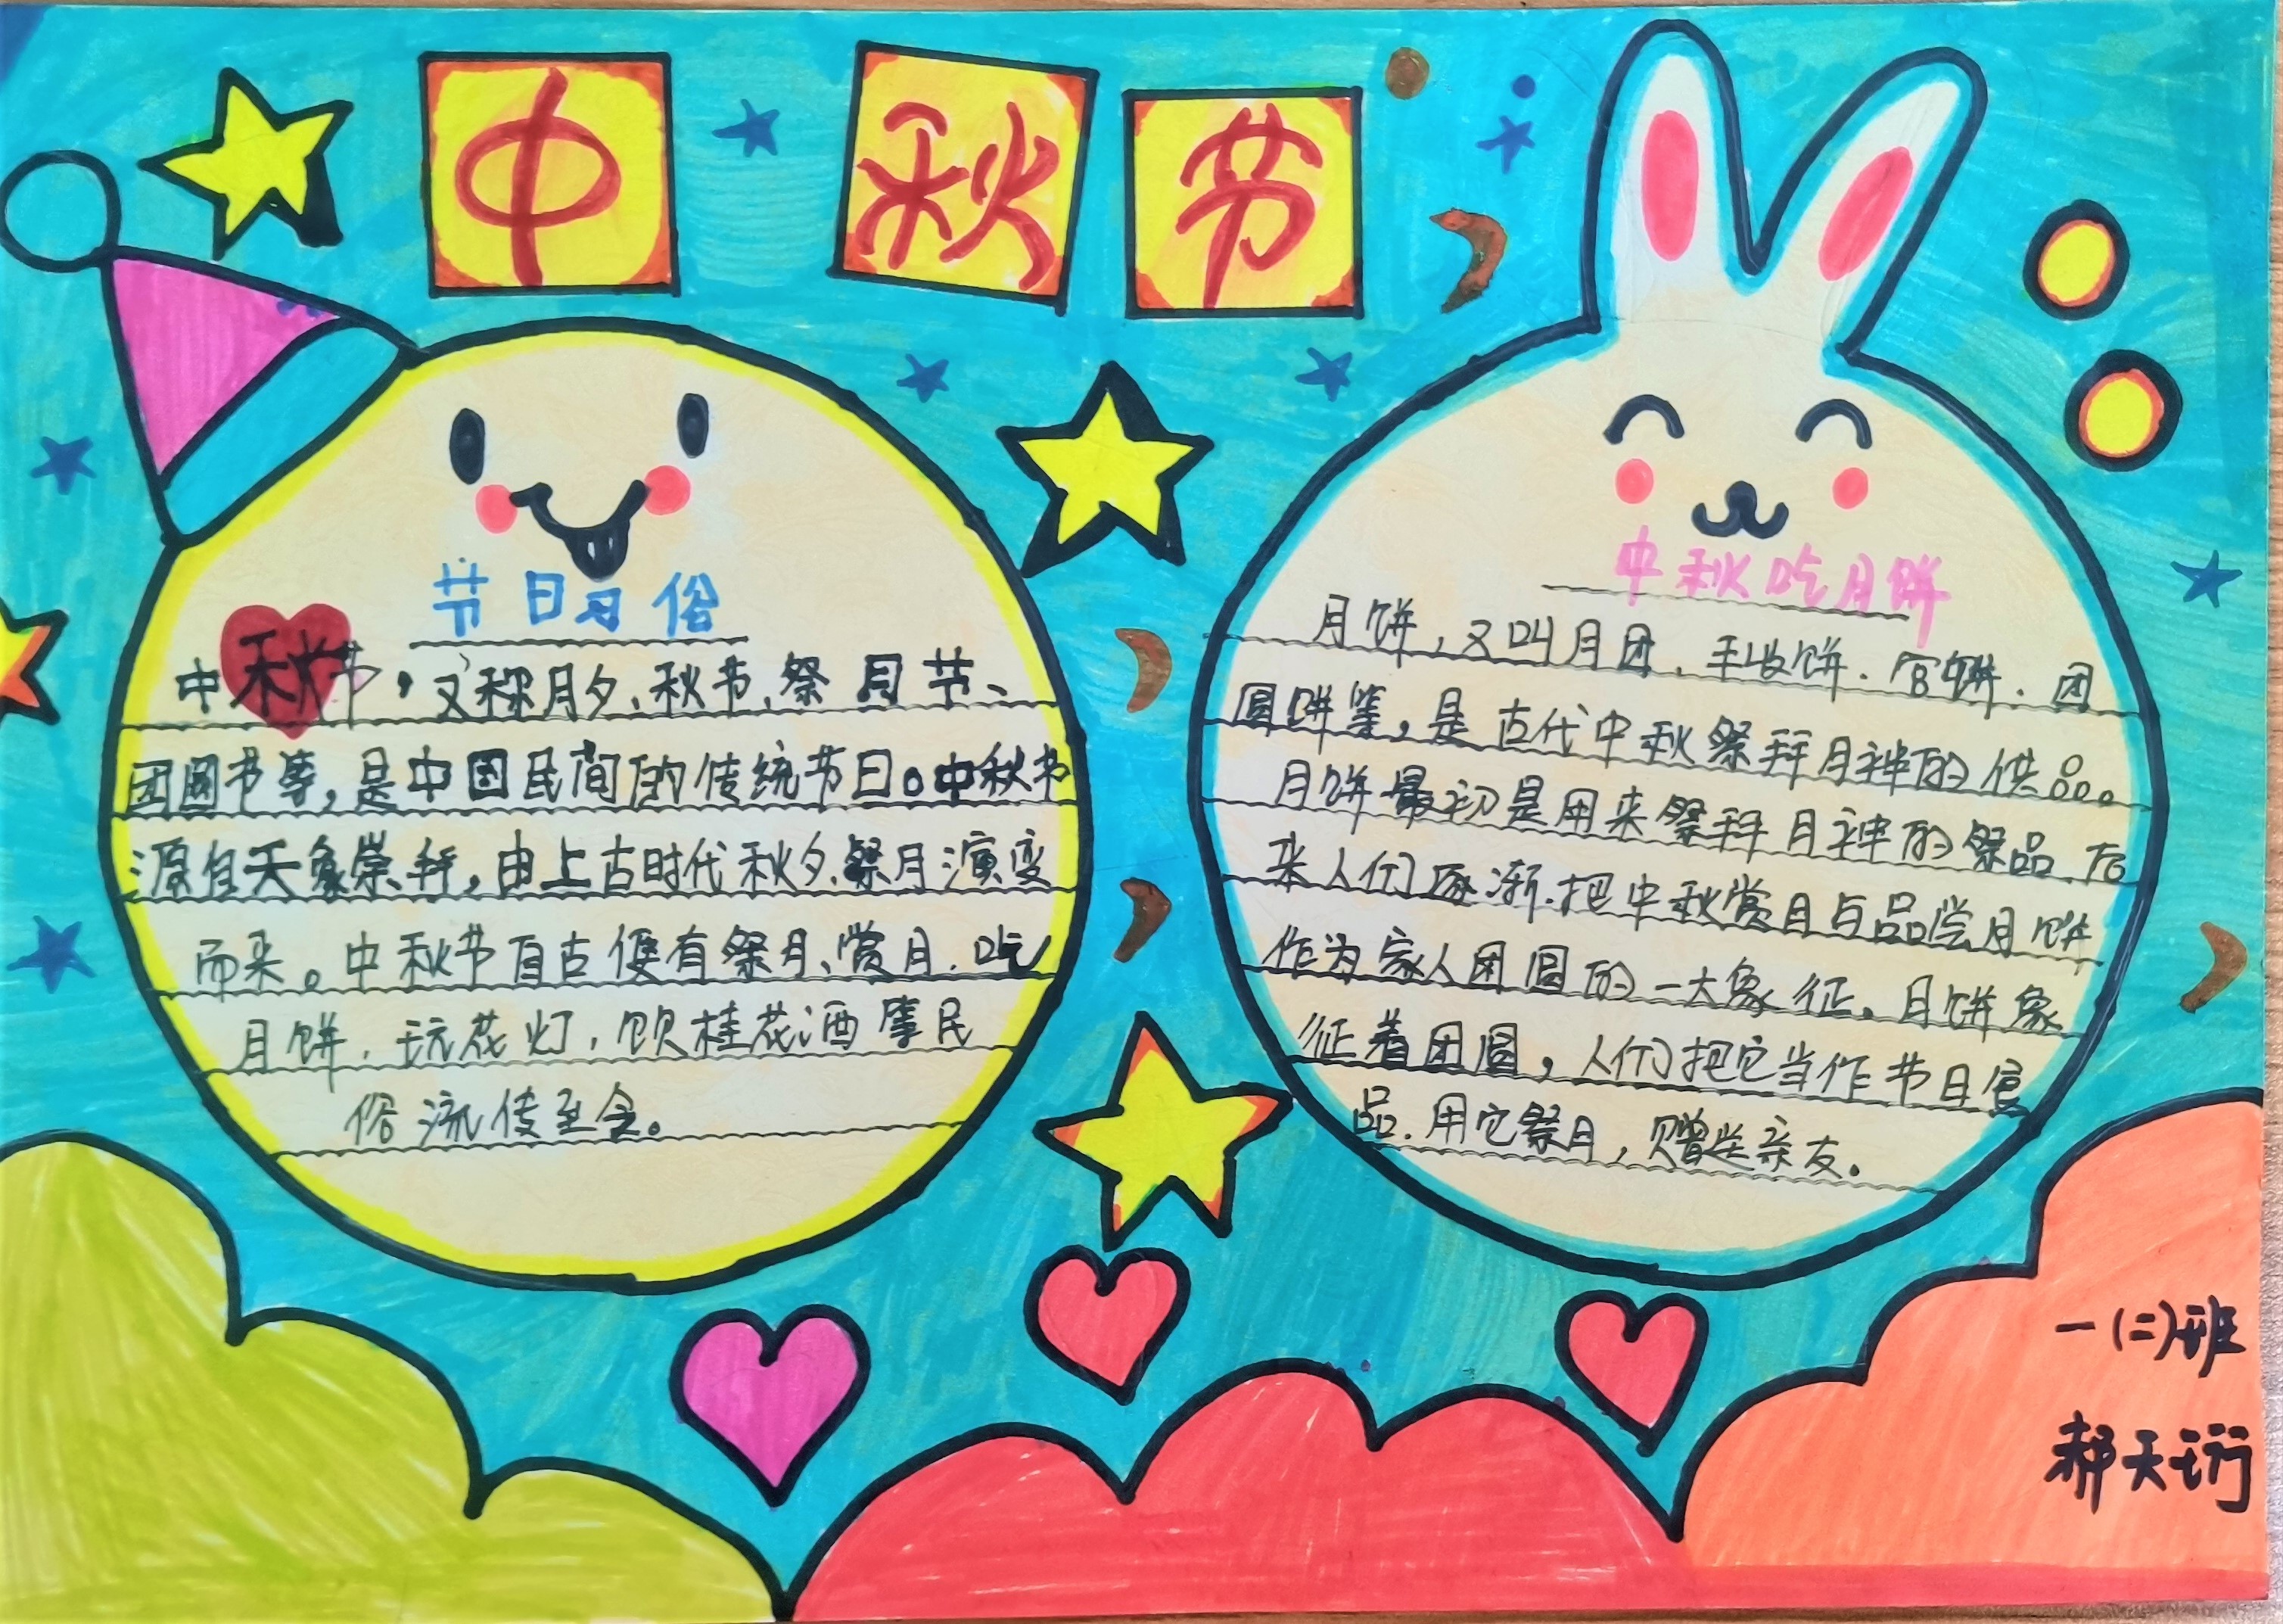 中秋节
节日习俗
中秋节,又称月夕、秋节、祭月节、
团圆节等,是中国民间的传统节日。中秋节
源自天象崇拜,由上古时代秋夕祭月演变
而来。中秋节自古便有祭月、赏月、吃
月饼、玩花灯、饮桂花酒等民
俗流传至今。
中秋吃月饼
月饼,又叫月团、丰收饼、宫饼、团
圆饼等,是古代中秋祭拜月神的供品。
月饼最初是用来祭拜月神的祭品,后
来人们逐渐把中秋赏月与品尝月饼
作为家人团圆的一大象征。月饼象
征着团圆,人们把它当作节日食
品,用它祭月,赠送亲友。
一(二)班
郝天珩